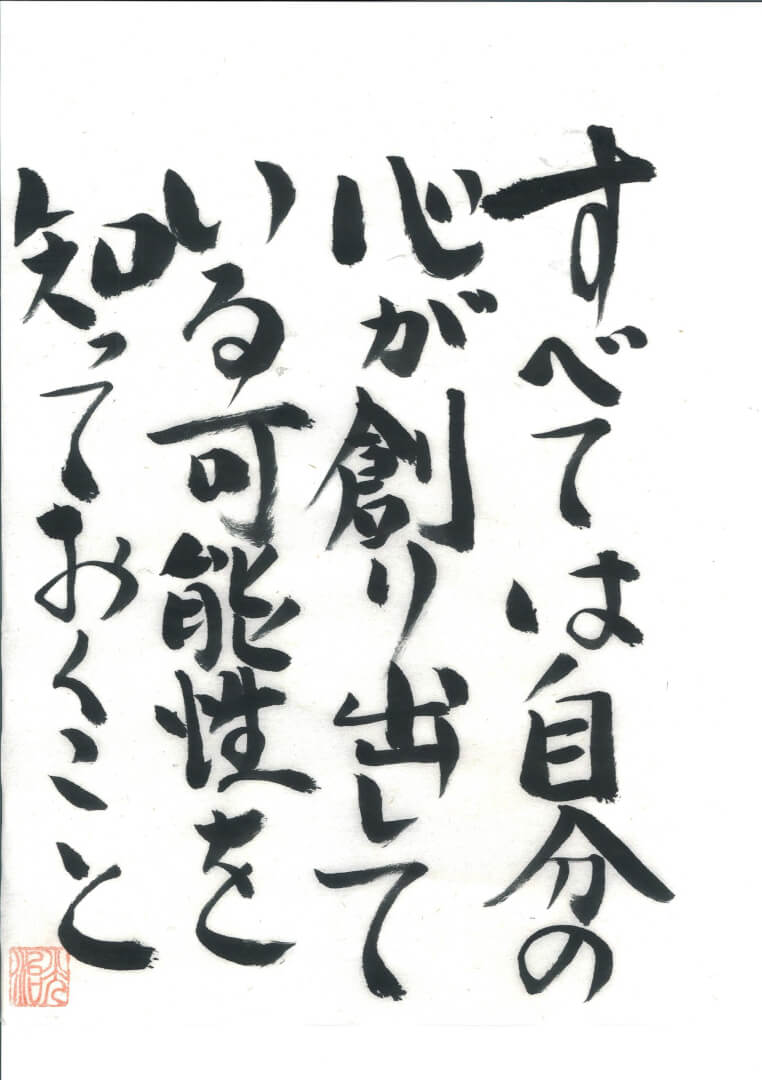 すべては自分の
心が創り出して
いる可能性を
知っておくこと